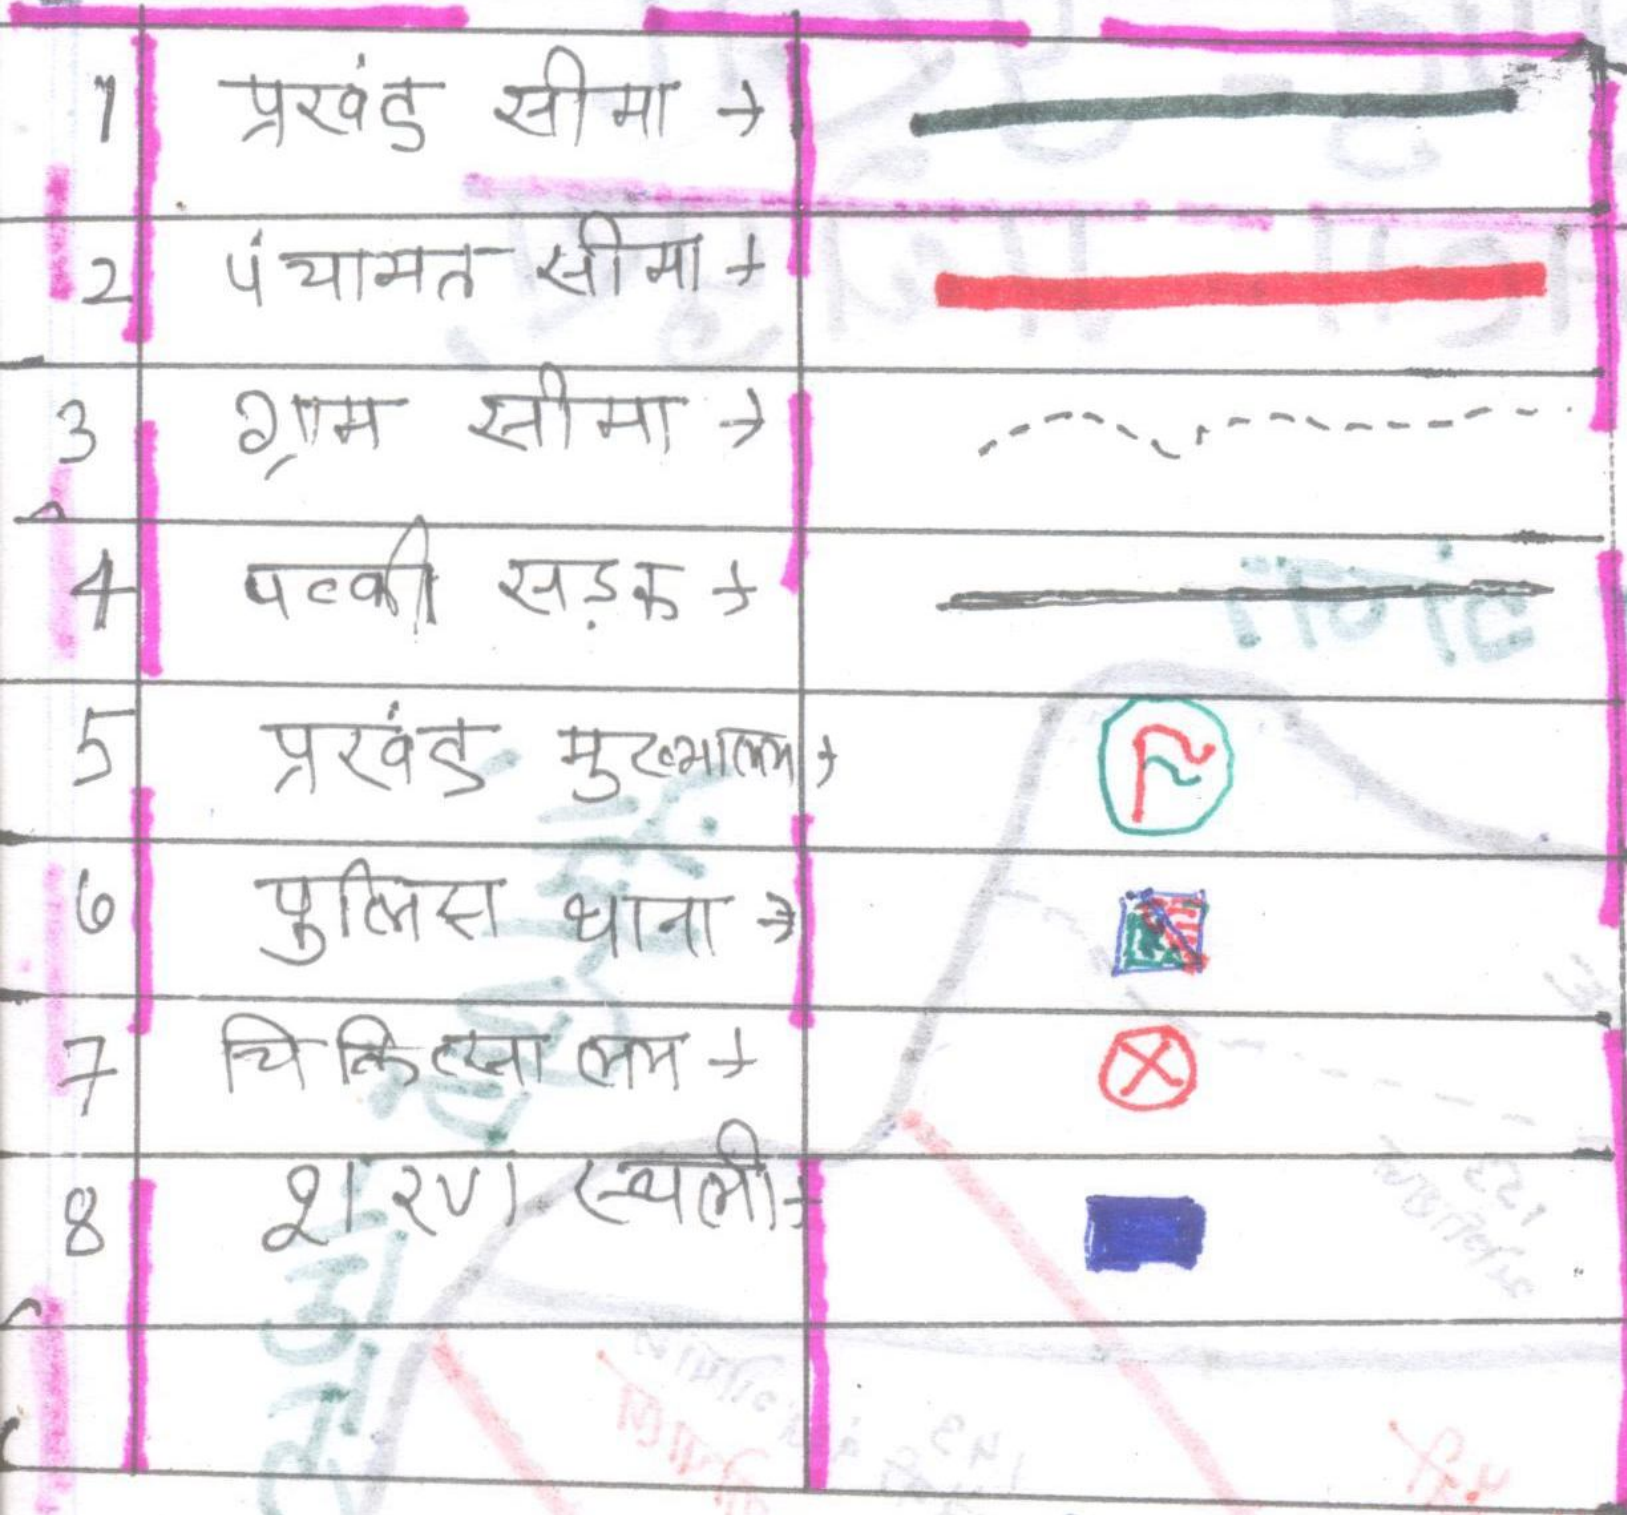 1 प्रखंड सीमा →
2 पंचायत सीमा →
3 ग्राम सीमा →
4 पक्की सड़क →
5 प्रखंड मुख्यालय →
6 पुलिस थाना →
7 चिकित्सालय →
8 शरण स्थली →